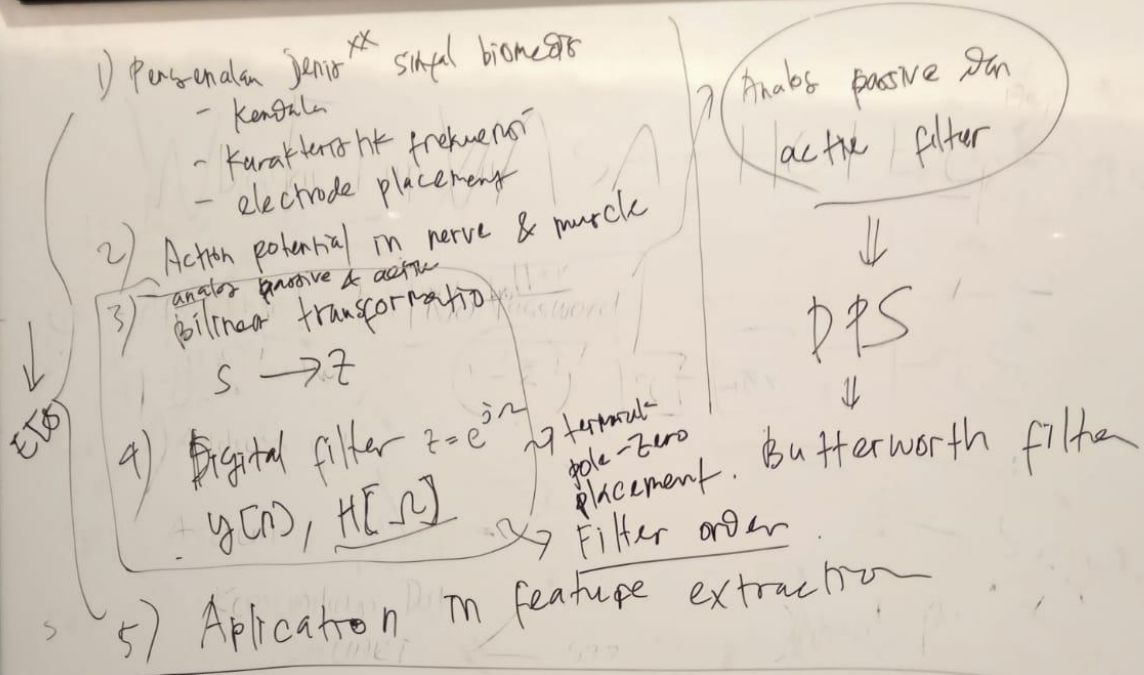 1) Pengenalan jenis xx sinyal biomedis
- Kendala
- Karakteristik frekuensi
- electrode placement
2) Action potential in nerve & muscle
3) - analog passive & active
Bilinear transformatio
S → Z
4) Digital filter z = e^jΩ
y[n), H[Ω]
→ termasuk
pole-zero
placement.
→ Filter order
5) Aplication in feature extraction
Analog passive dan
active filter
⇓
DPS
⇓
Butterworth filter